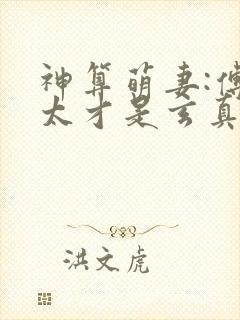 神算萌妻:傅
太才是玄真
洪文虎